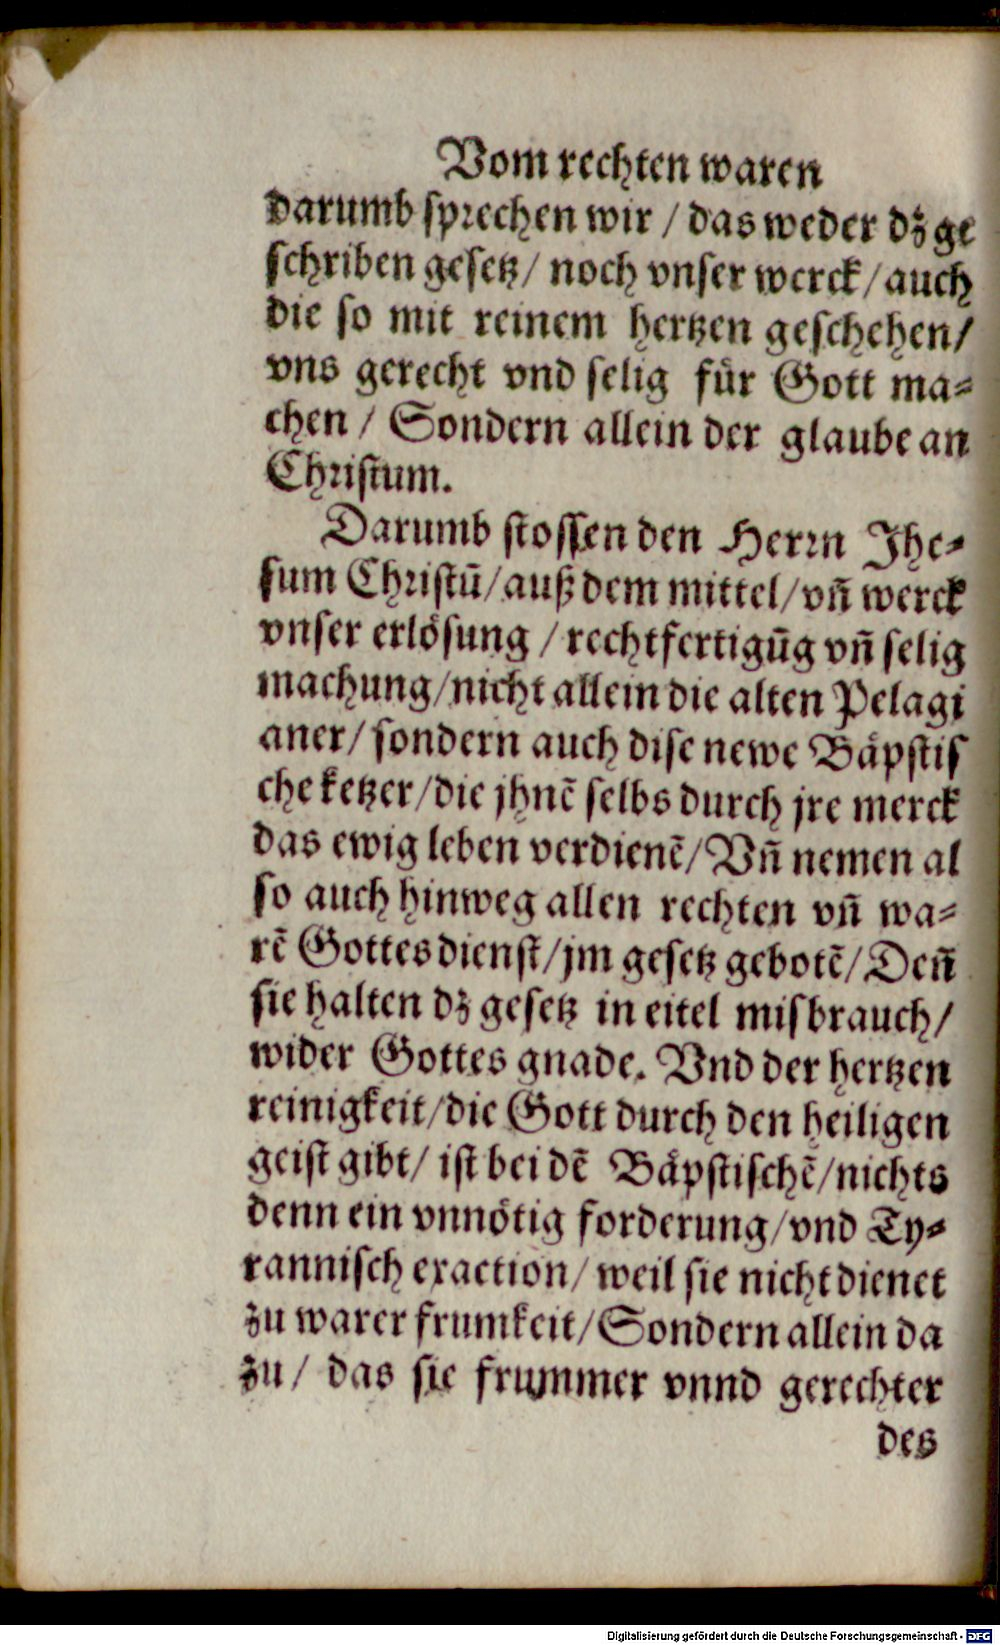 Vom rechten waren
darumb sprechen wir / das weder dz ge
schriben gesetz / noch vnser werck / auch
die so mit reinem hertzen geschehen /
vns gerecht vnd selig für Gott ma-
chen / Sondern allein der glaube an
Christum.
Darumb stossen den Herrn Jhe-
sum Christū / auß dem mittel / vñ werck
vnser erlösung / rechtfertigūg vñ selig
machung / nicht allein die alten Pelagi
aner / sondern auch dise newe Bäpstis
che ketzer / die jhnē selbs durch jre merck
das ewig leben verdienē / Vñ nemen al
so auch hinweg allen rechten vñ wa-
rē Gottesdienst / jm gesetz gebotē / Deñ
sie halten dz gesetz in eitel misbrauch /
wider Gottes gnade. Vnd der hertzen
reinigkeit / die Gott durch den heiligen
geist gibt / ist bei dē Bäpstischē / nichts
denn ein vnnötig forderung / vnd Ty-
rannisch exaction / weil sie nicht dienet
zu warer frumkeit / Sondern allein da
zu / das sie frummer vnnd gerechter
des
Digitalisierung gefördert durch die Deutsche Forschungsgemeinschaft - DFG